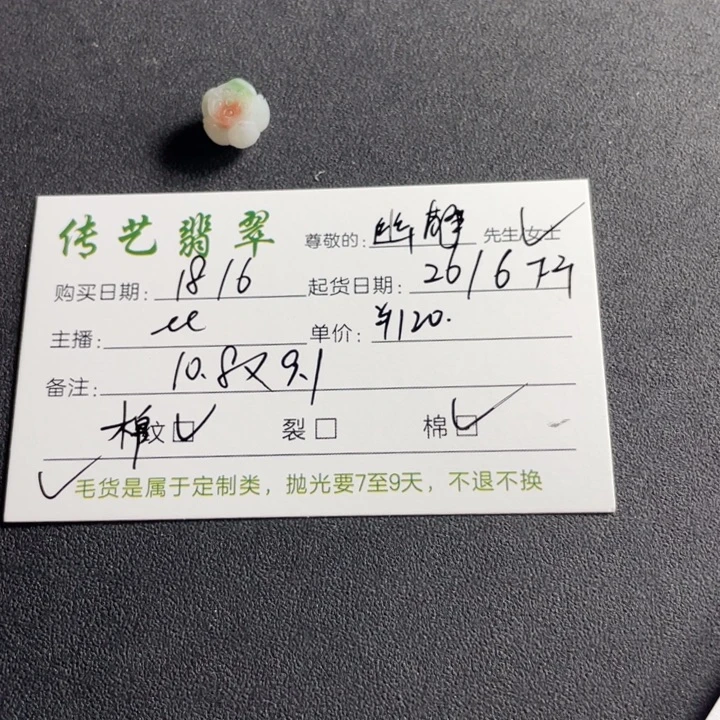 传艺翡翠 尊敬的: 先生/女士
购买日期: 18/6 起货日期: 26/6 下午
主播: 单价: ¥120.
备注: 10.8X9.1
棉纹 裂 棉
毛货是属于定制类，抛光要7至9天，不退不换